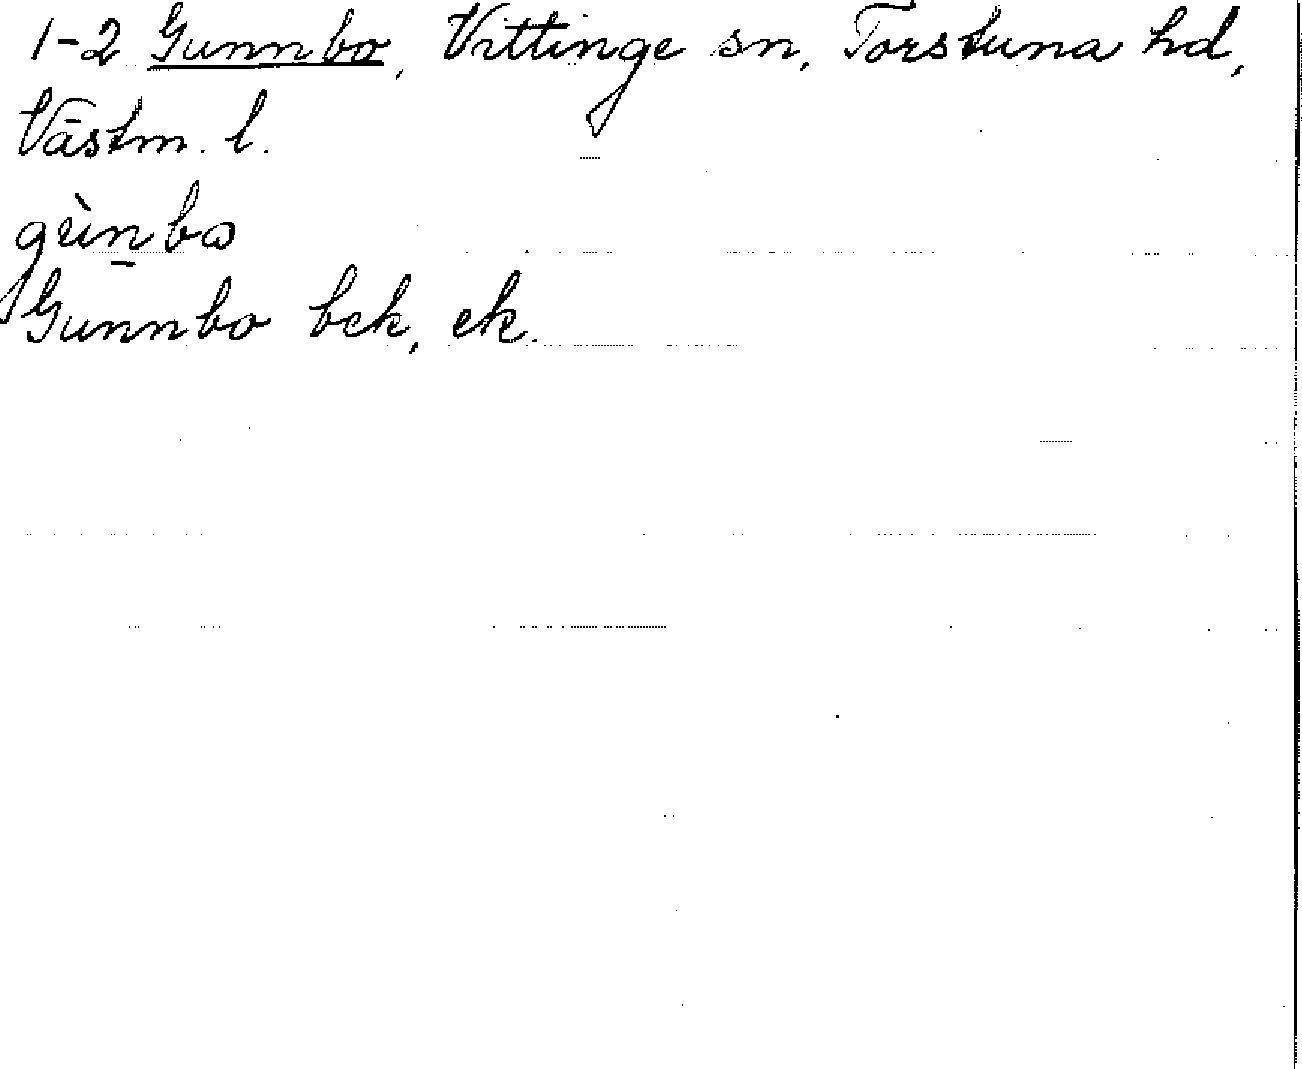 1-2 Gunnbo, Vittinge sn, Torstuna hd,
Västm. l.
gùn̲bω
Gunnbo bek, ek.